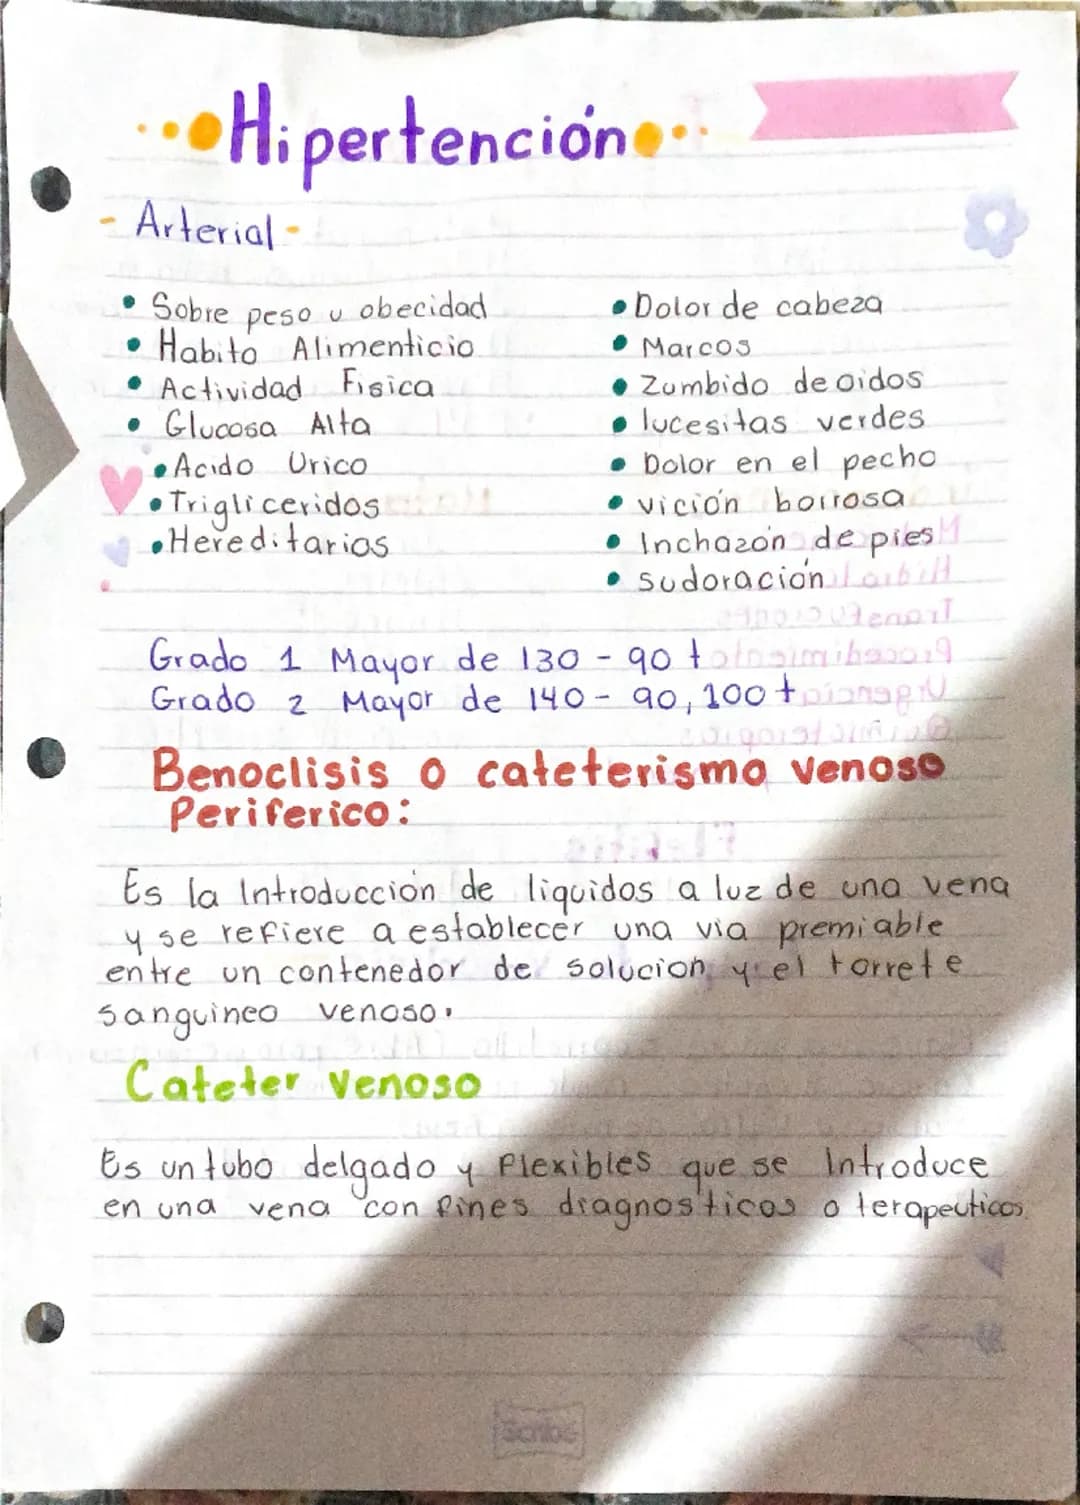 Hipertención
- Arterial -
• Sobre peso u obecidad
• Habito Alimenticio
• Actividad Fisica
• Glucosa Alta
• Acido Urico
• Trigliceridos
• Hereditarios
• Dolor de cabeza
• Marcos
• Zumbido de oidos
• lucesitas verdes
• Dolor en el pecho
• vición borrosa
• Inchazón de pies
• sudoración
Grado 1 Mayor de 130 - 90 +
Grado 2 Mayor de 140 - 90, 100 +
Benoclisis o cateterismo venoso
Periferico:
Es la Introducción de liquidos a luz de una vena
y se refiere a establecer una via premiable
entre un contenedor de solucion y el torrete
sanguineo venoso.
Cateter venoso
Es un tubo delgado y flexibles que se Introduce
en una vena con fines diagnosticos o terapeuticos
Scribe